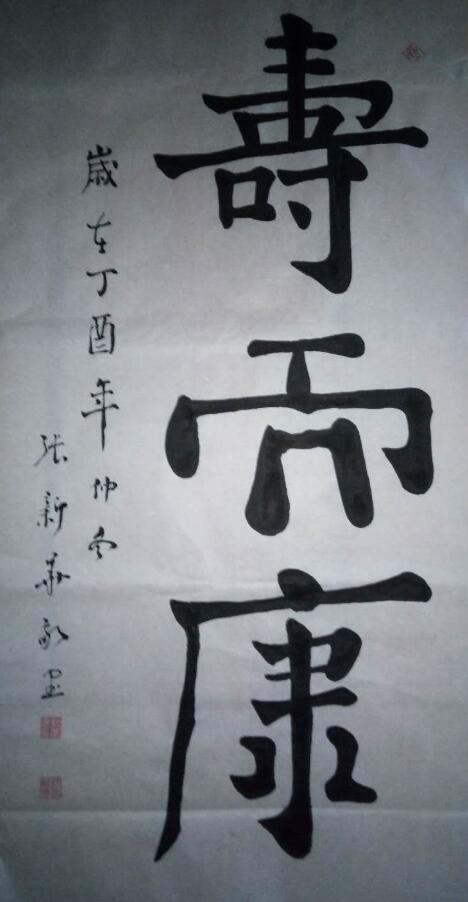 壽而康
歲在丁酉年仲冬
张新華敬墨